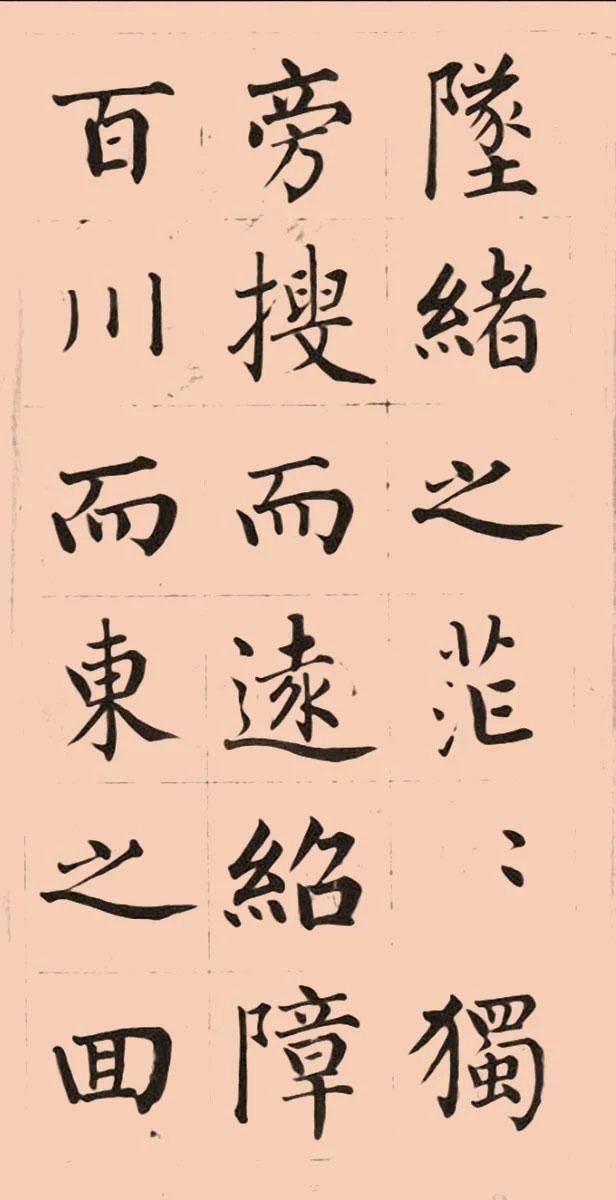 墜緒之茫〻獨
旁搜而遠紹障
百川而東之回